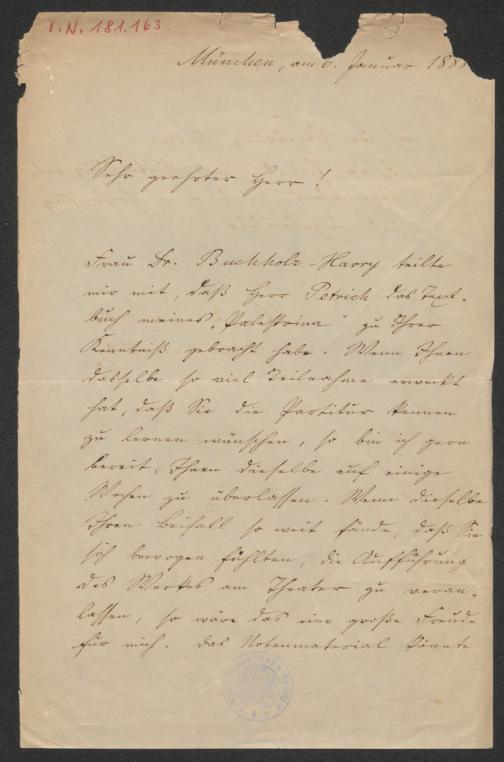 I.N. 181.163
München, am 6. Januar 188
Sehr geehrter Herr!
Frau Dr. Buchholz-Harry teilte
mir mit, daß Herr Petrich das Text-
buch meines „Palestrina“ zu Ihrer
Kenntniß gebracht habe. Wenn Ihnen
dasselbe so viel Teilnahme erweckt
hat, daß Sie die Partitur kennen
zu lernen wünschen, so bin ich gern
bereit, Ihnen dieselbe auf einige
Wochen zu überlassen. Wenn dieselbe
Ihren Beifall so weit fände, daß Sie
sich bewogen fühlten, die Aufführung
des Werkes am Theater zu veran-
lassen, so wäre das eine große Freude
für mich. Das Notenmaterial könnte